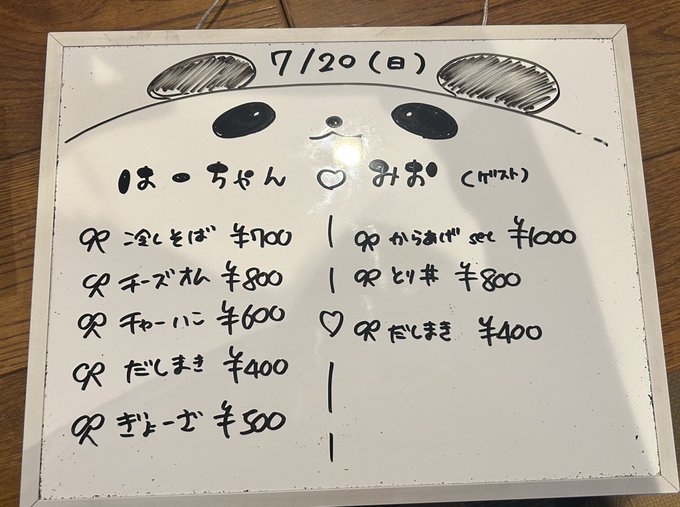 7/20(日)
はーちゃん ♡ みお (ゲスト)
冷しそば ¥700
チーズオム ¥800
チャーハン ¥600
だしまき ¥400
ぎょーざ ¥500
からあげ set ¥1000
とり丼 ¥800
だしまき ¥400